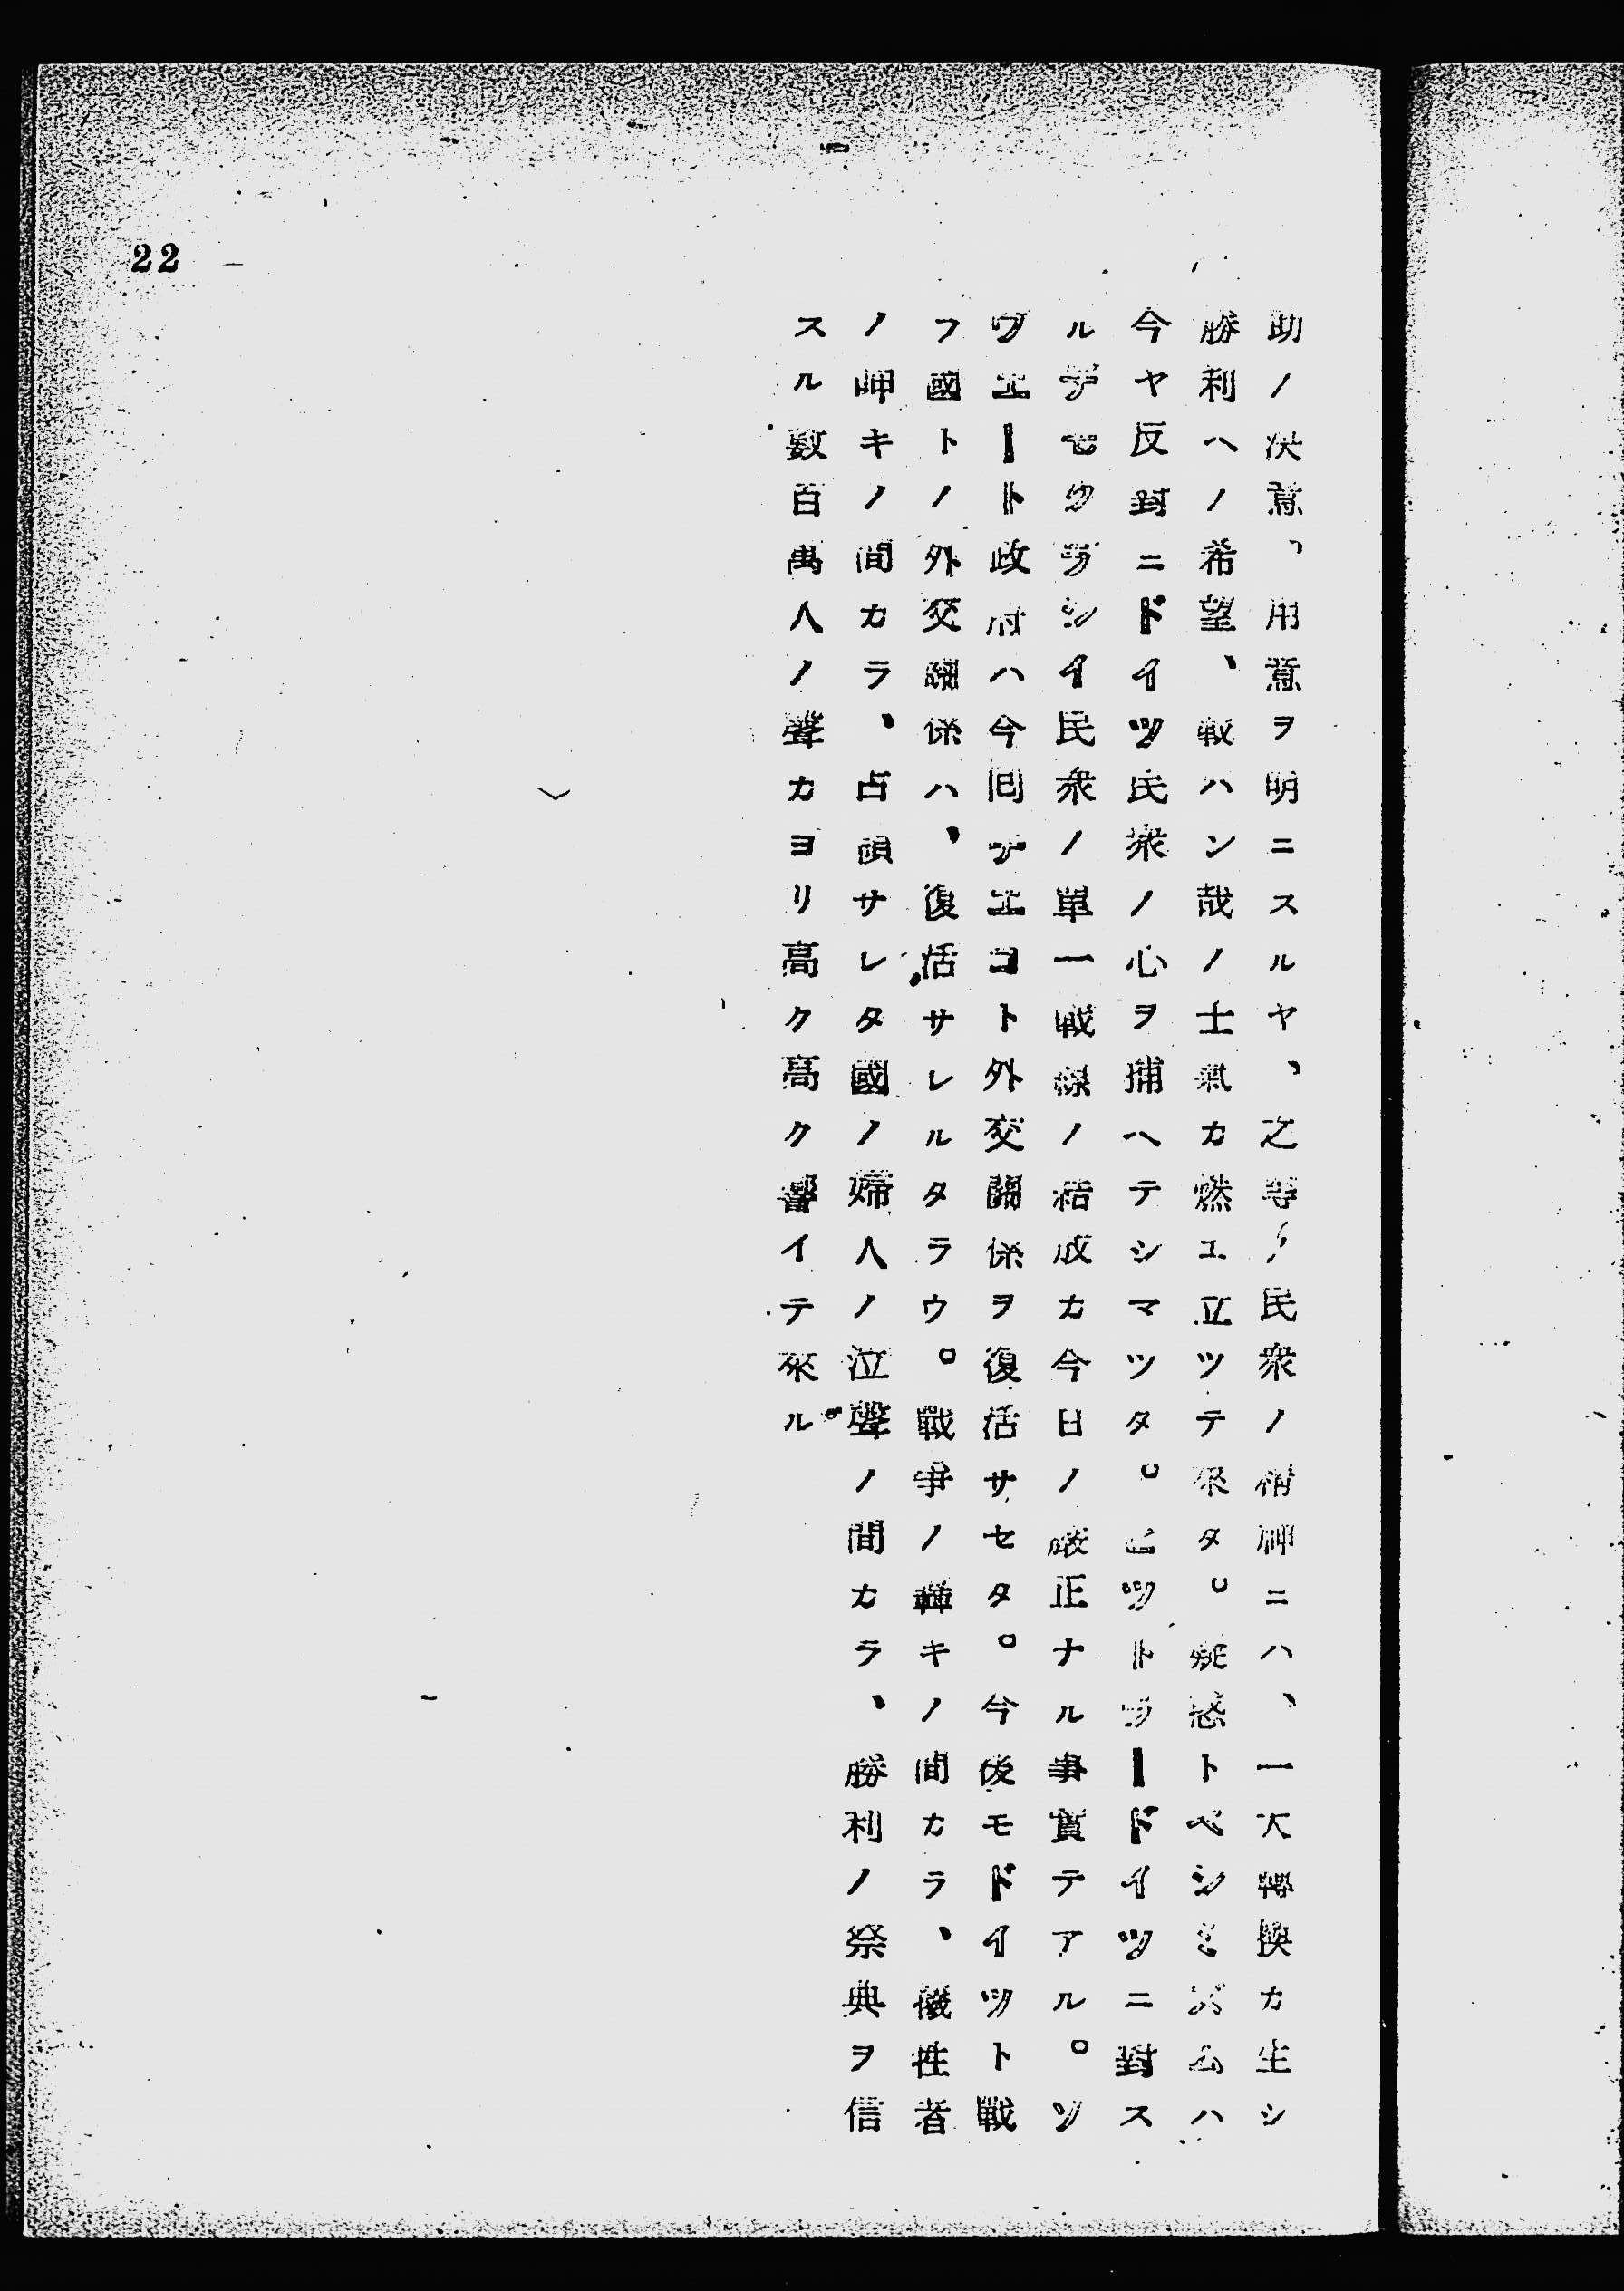 助ノ決意、用意ヲ明ニスルヤ、之等ノ民衆ノ精神ニハ、一大轉換カ生シ
勝利ヘノ希望、戦ハン哉ノ士氣カ燃エ立ツテ來タ。疑惑トペシミズムハ
今ヤ反對ニドイツ民衆ノ心ヲ捕ヘテシマツタ。ヒツトラードイツニ對ス
ル　　　　シイ民衆ノ單一戰線ノ結成カ今日ノ厳正ナル事實テアル。ソ
ヴエート政府ハ今囘チエコト外交關係ヲ復活サセタ。今後モドイツト戰
フ國トノ外交關係ハ、復活サレルタラウ。戰爭ノ轟キノ間カラ、犠牲者
ノ呻キノ間カラ、占領サレタ國ノ婦人ノ泣聲ノ間カラ、勝利ノ祭典ヲ信
スル數百萬人ノ聲カヨリ高ク高ク響イテ來ル。
22